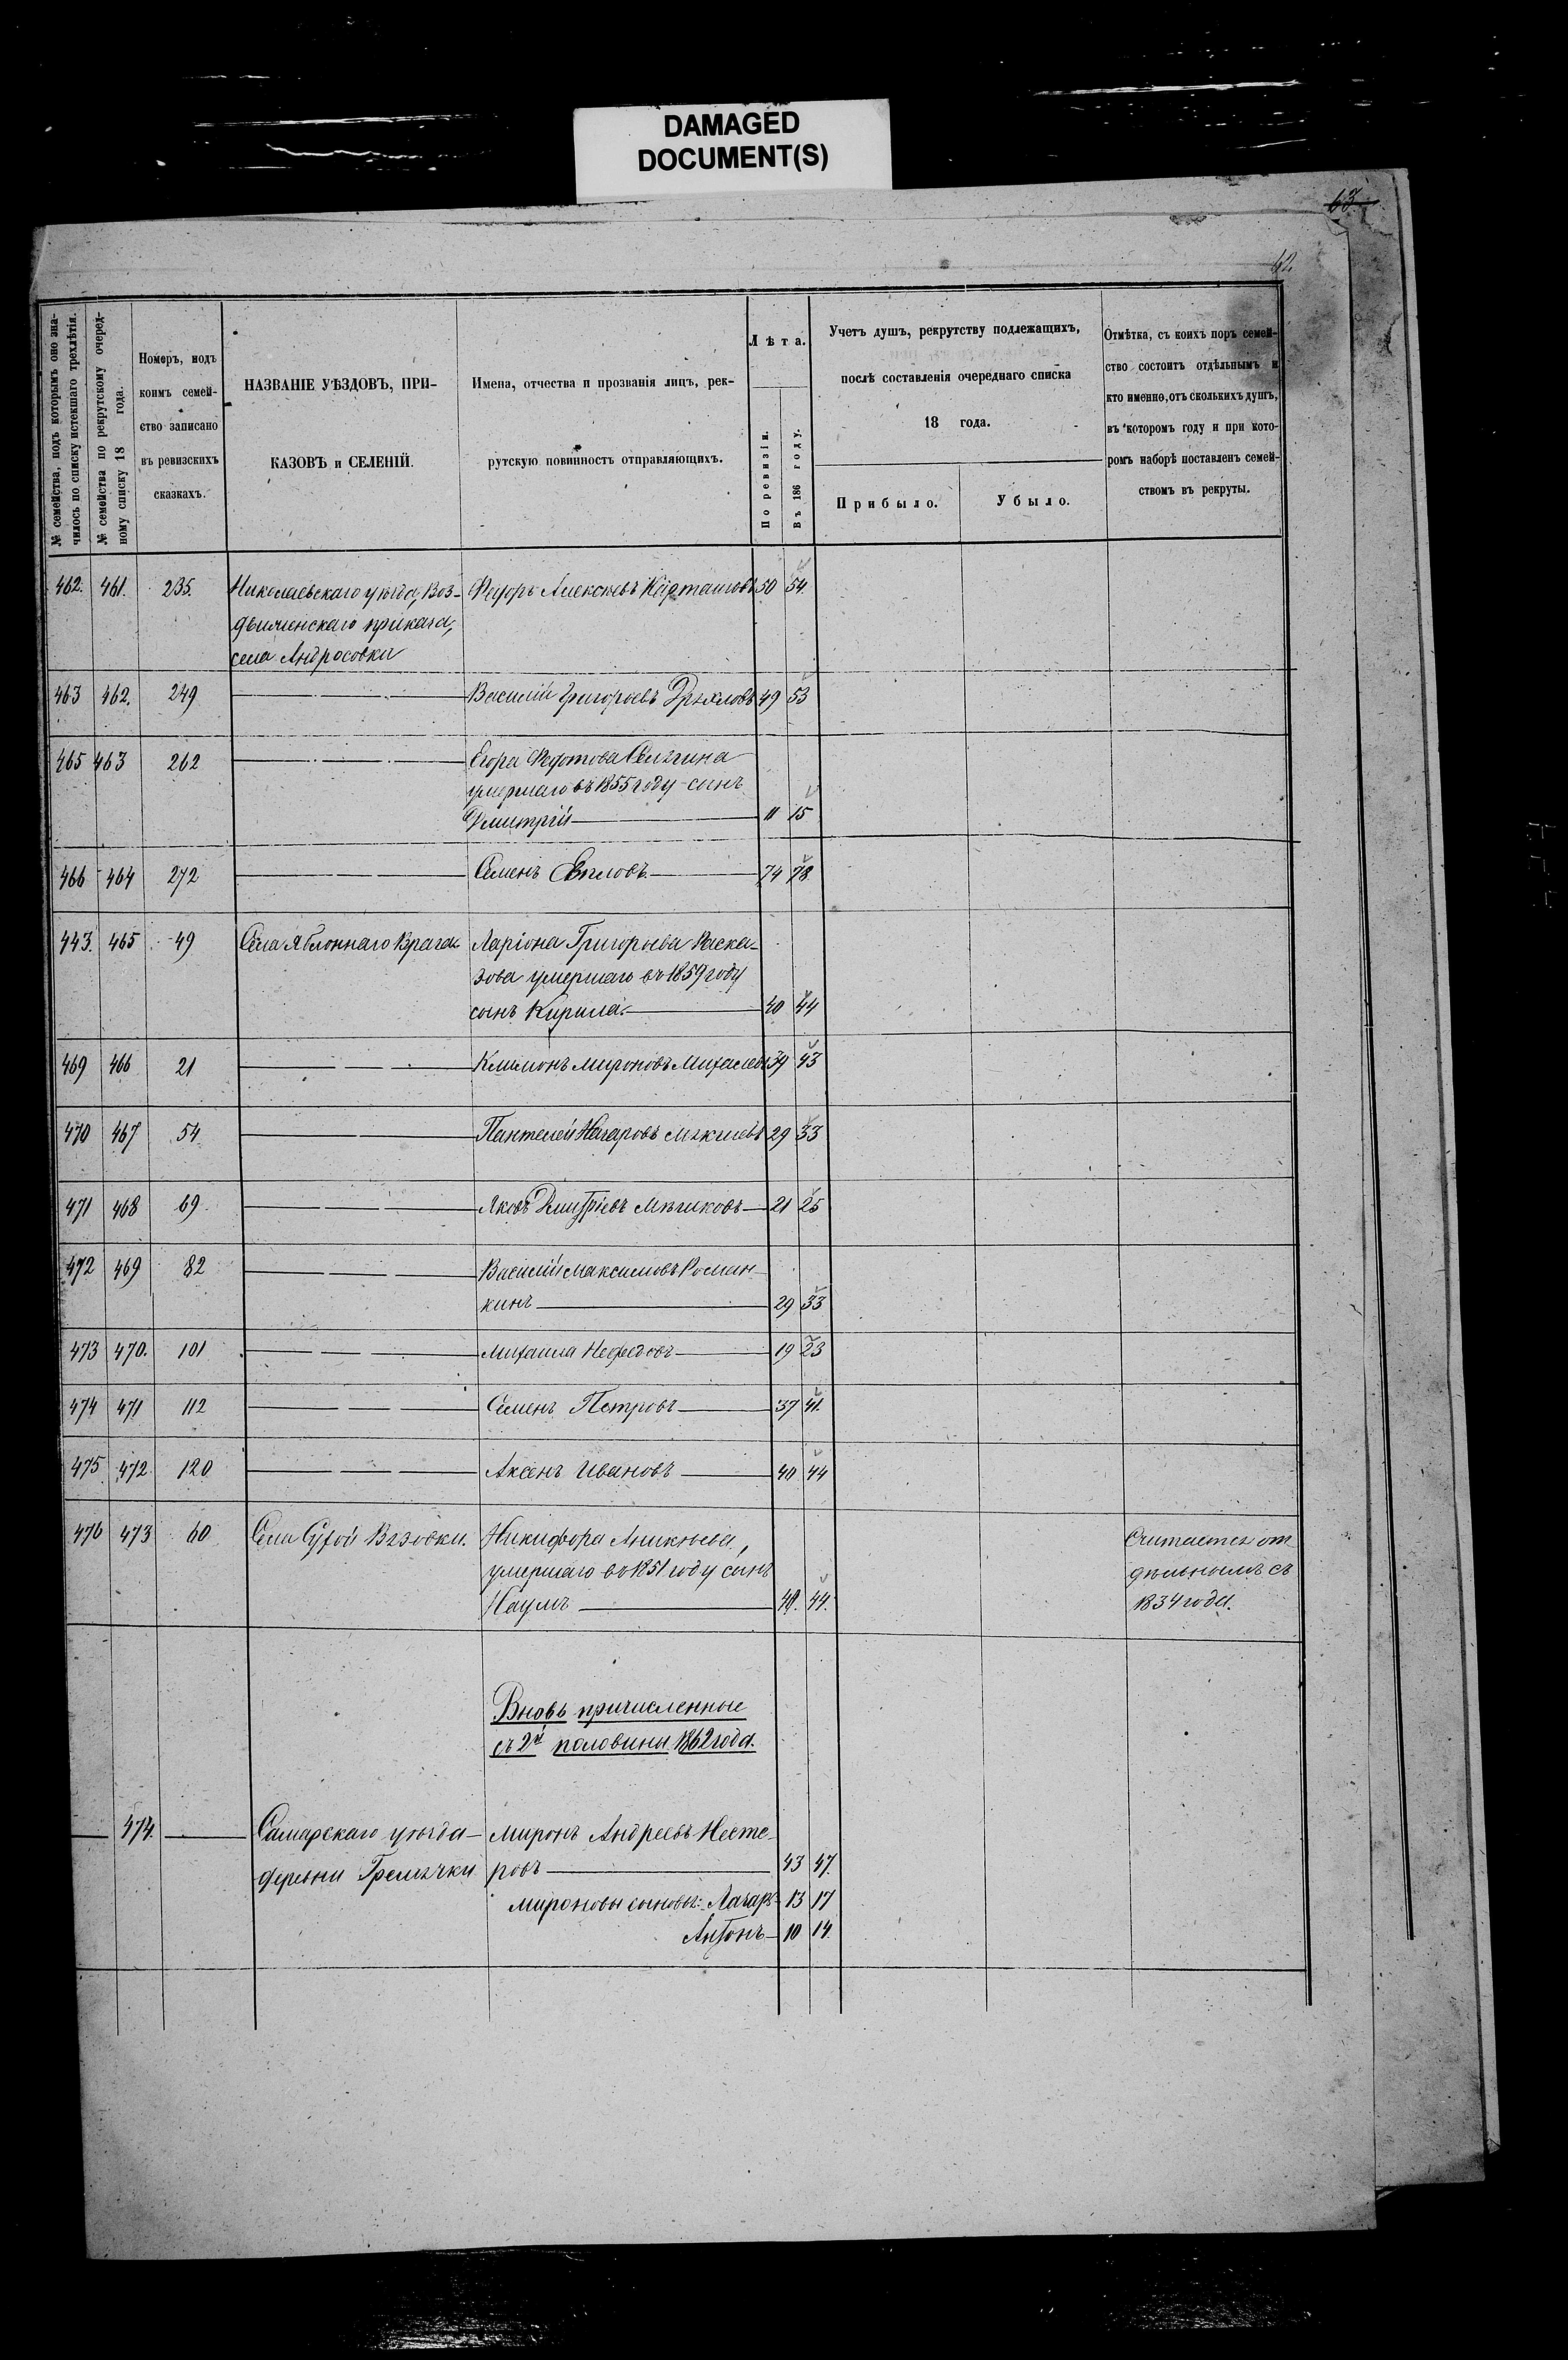 DAMAGED
DOCUMENT(S)
63
62
№ семейства, подъ которымъ оно зна-
чилось по списку истекшаго трехлѣтія.
№ семейства по рекрутскому очеред-
ному списку 18 года.
Номеръ, подъ
коимъ семей-
ство записано
въ ревизскихъ
сказкахъ.
НАЗВАНІЕ УѢЗДОВЪ, ПРИ-
КАЗОВЪ и СЕЛЕНІЙ.
Имена, отчества и прозванія лицъ, рек-
рутскую повинность отправляющихъ.
Лѣта.
По ревизіи.
Въ 186 году.
Учетъ душъ, рекрутству подлежащихъ,
послѣ составленія очереднаго списка
18 года.
Прибыло.
Убыло.
Отмѣтка, съ коихъ поръ семей-
ство состоитъ отдѣльнымъ и
кто именно, отъ сколькихъ душъ,
въ которомъ году и при кото-
ромъ наборѣ поставленъ семей-
ствомъ въ рекруты.
462. 461. 235. Николаевскаго уѣзда, Воз- Федоръ Алексѣевъ Карташовъ 50 54.
движенскаго приказа,
села Андросовки
463 462. 249 Василій Григорьевъ 49 53
465 463 262 Егора Федотова
умершаго въ 1855 году сынъ
Дмитрій 11 15
466 464 272 Семенъ 74 78.
443. 465 49 Села Яблоннаго Врага Ларіона Григорьева Раска-
зова умершаго въ 1859 году
сынъ Кирила. 40 44
469 466 21 Климонъ Мироновъ 39 43
470 467 54 Пантелей Назаровъ 29 33
471 468 69 Яковъ Дмитріевъ 21 25
472 469 82 Василій Максимовъ Роман-
кинъ 29 33
473 470. 101 Михаила Нефедовъ 19 23
474 471 112 Семенъ Петровъ 37 41.
475 472 120 Аксенъ Ивановъ 40 44
476 473 60 Села Сухой Вязовки. Никифора Аникѣева, Считается от
умершаго въ 1851 году сынъ дѣльнымъ съ
Наумъ 40. 44. 1834 года.
Вновь причисленные
съ 2й половины 1862 года.
474. Самарскаго уѣзда Миронъ Андреевъ Несте-
деревни Гремячки ровъ 43 47.
Мироновы сыновья: Лазарь 13 17
Антонъ 10 14.